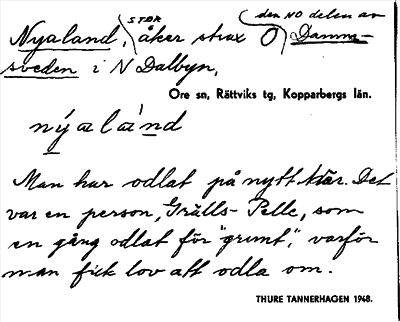 STOR den NO delen av
Nyaland, åker strax O Damm-
sveden i N Dalbyn,
Ore sn, Rättviks tg, Kopparbergs län.
nýalànd
Man har odlat på nytt där. Det
var en person, Grälls-Pelle, som
en gång odlat för "grunt", varför
man fick lov att odla om.
THURE TANNERHAGEN 1948.